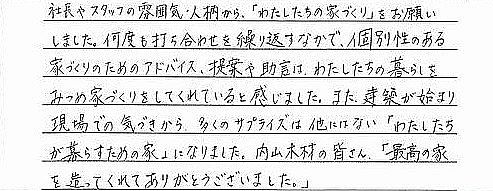 社長やスタッフの雰囲気・人柄から、「わたしたちの家づくり」をお願い
しました。何度も打ち合わせを繰り返すなかで、個別性のある
家づくりのためのアドバイス、提案や助言は、わたしたちの暮らしを
みつめ家づくりをしてくれていると感じました。また、建築が始まり
現場での気づきから、多くのサプライズは他にはない「わたしたち
が暮らすための家」になりました。内山木材の皆さん、「最高の家
を造ってくれてありがとうございました。」